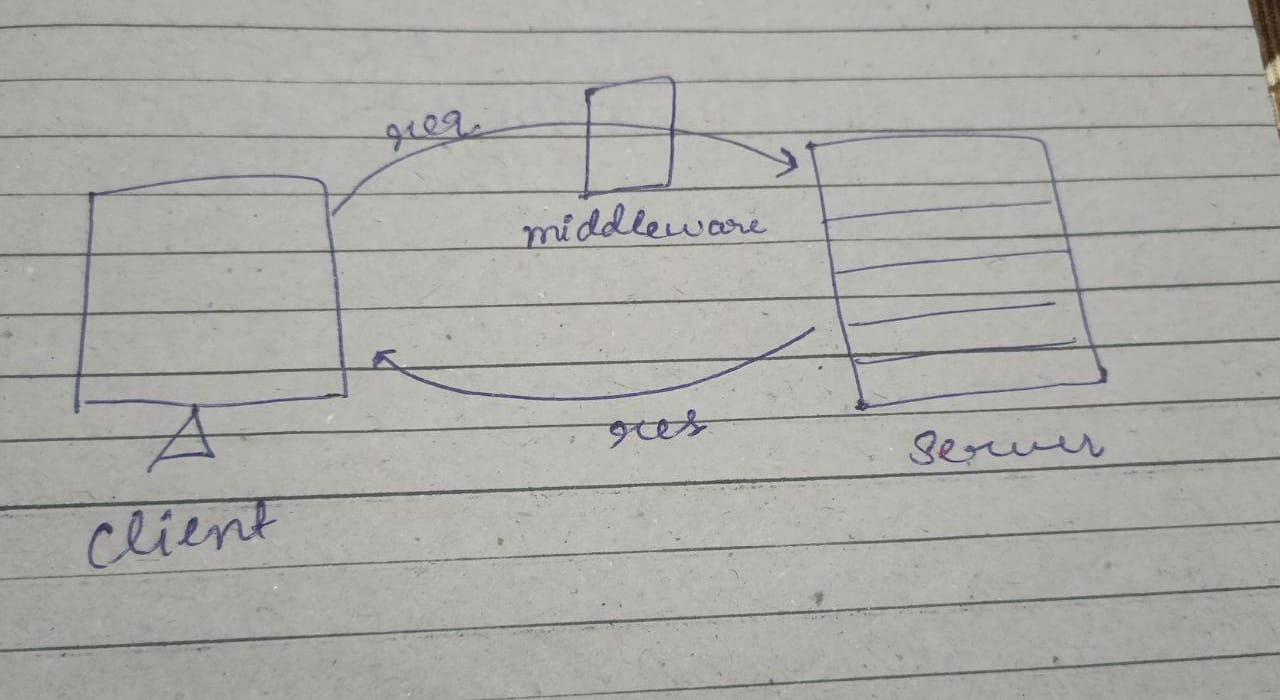 req.
middleware
res
Server
Client